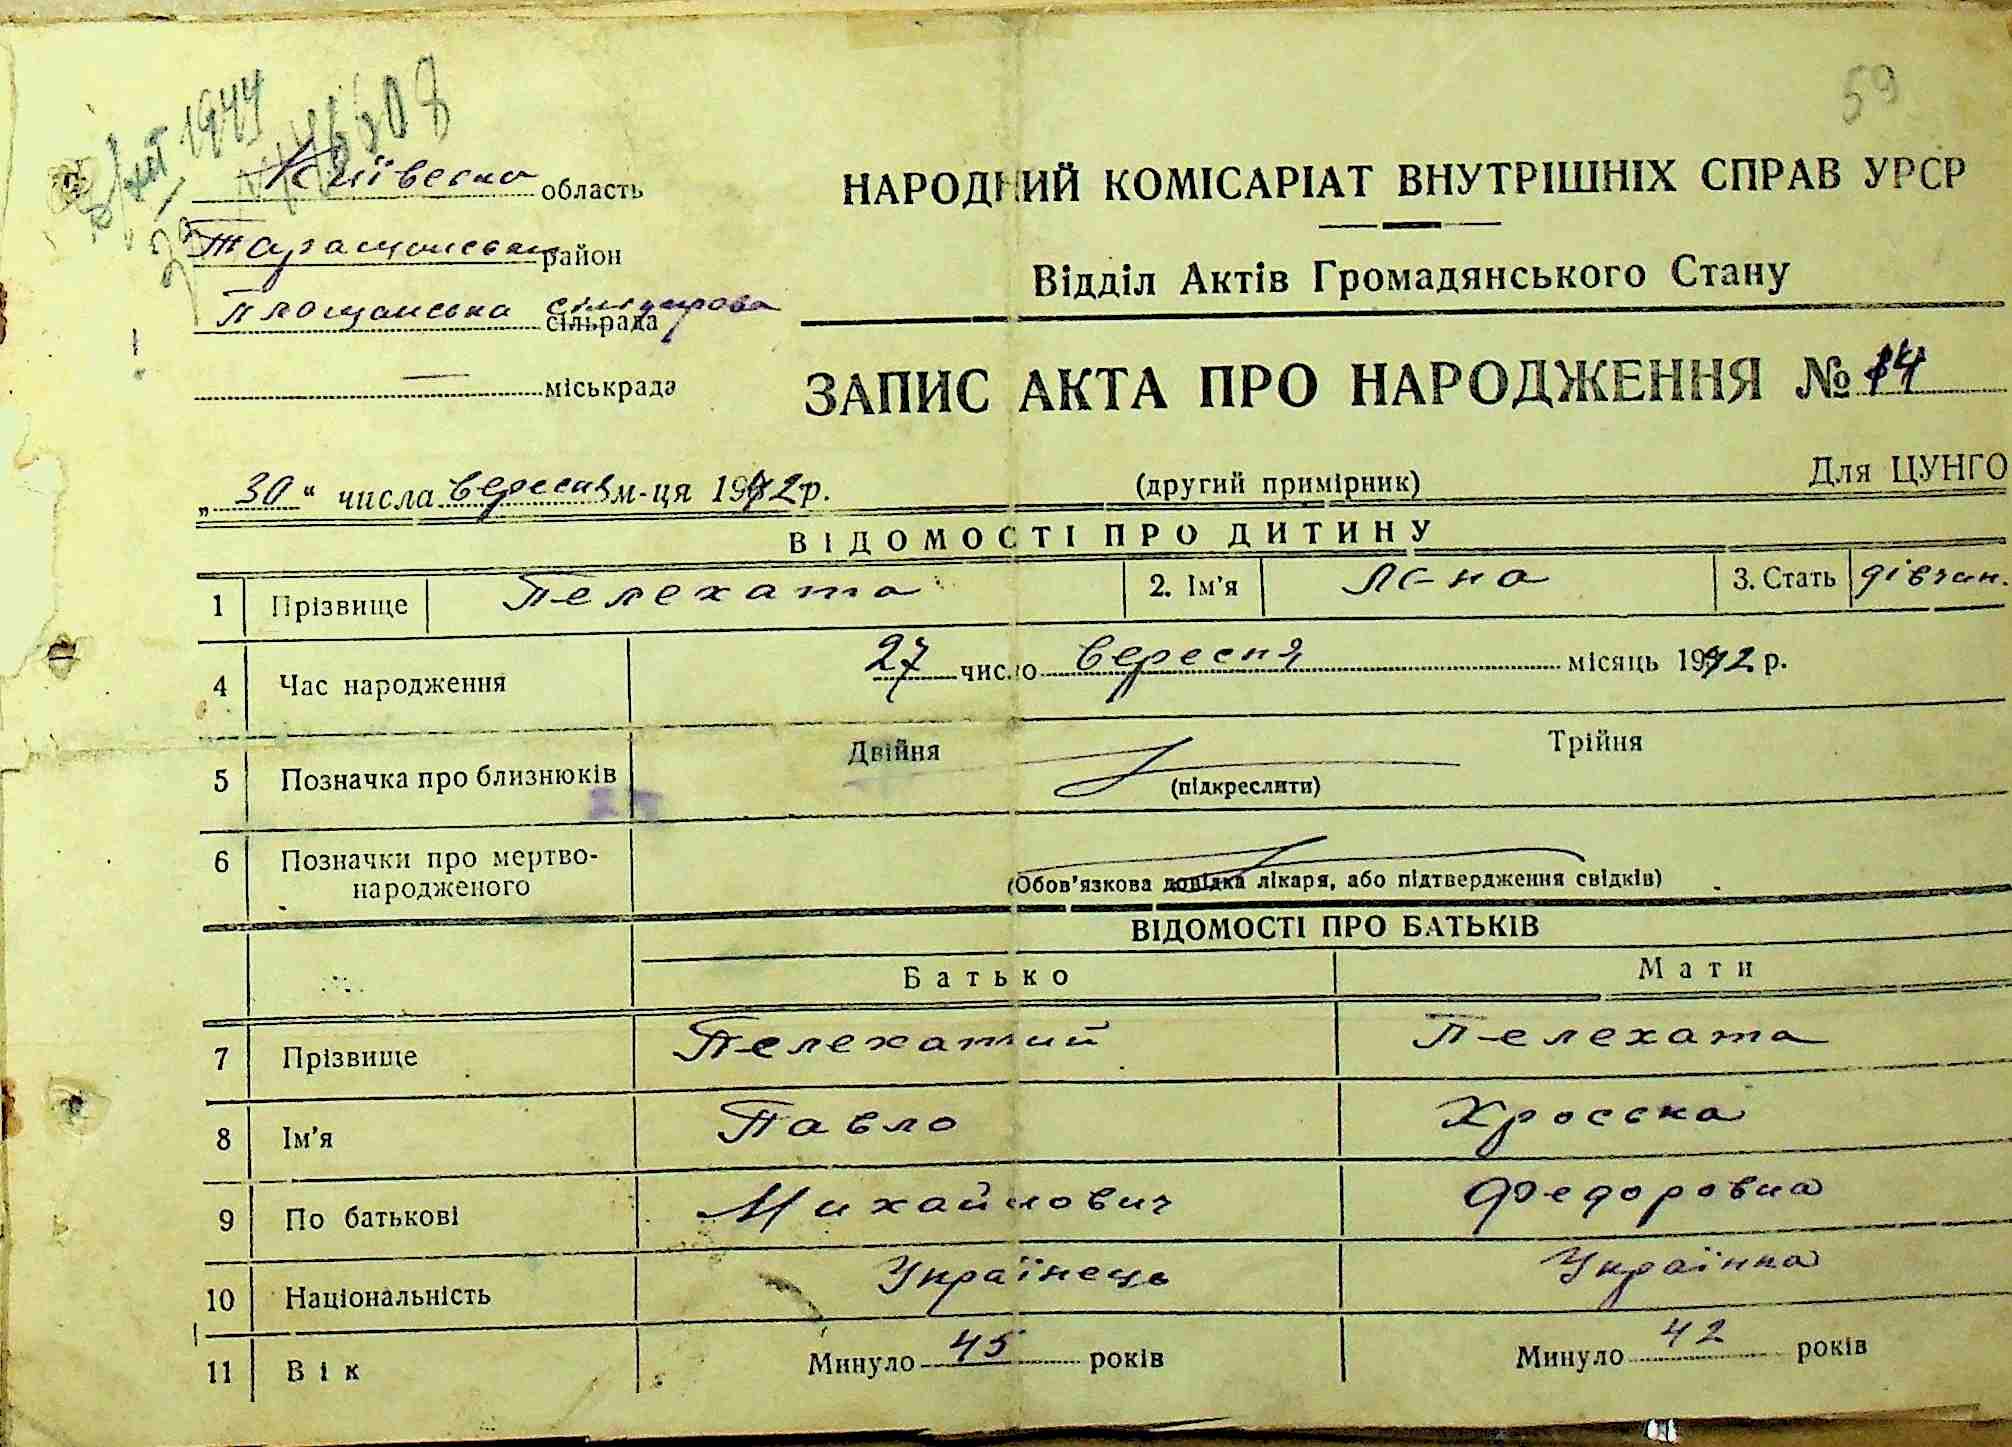 1944
59
Київська область
НАРОДНИЙ КОМІСАРІАТ ВНУТРІШНІХ СПРАВ УРСР
Таращанський район
Відділ Актів Громадянського Стану
Площанська сільуправа
сільрада
міськрада
ЗАПИС АКТА ПРО НАРОДЖЕННЯ № 14
„30“ числа вересня м-ця 1942 р.
(другий примірник)
Для ЦУНГО
ВІДОМОСТІ ПРО ДИТИНУ
1 Прізвище Пелехата 2. Ім'я 3. Стать дівчин.
4 Час народження 27 число вересня місяць 1942 р.
5 Позначка про близнюків Двійня (підкреслити) Трійня
6 Позначки про мертво-
народженого
(Обов'язкова довідка лікаря, або підтвердження свідків)
ВІДОМОСТІ ПРО БАТЬКІВ
Батько Мати
7 Прізвище Пелехатий Пелехата
8 Ім'я Павло
9 По батькові Михайлович Федоровна
10 Національність Українець Українка
11 Вік Минуло 45 років Минуло 42 років